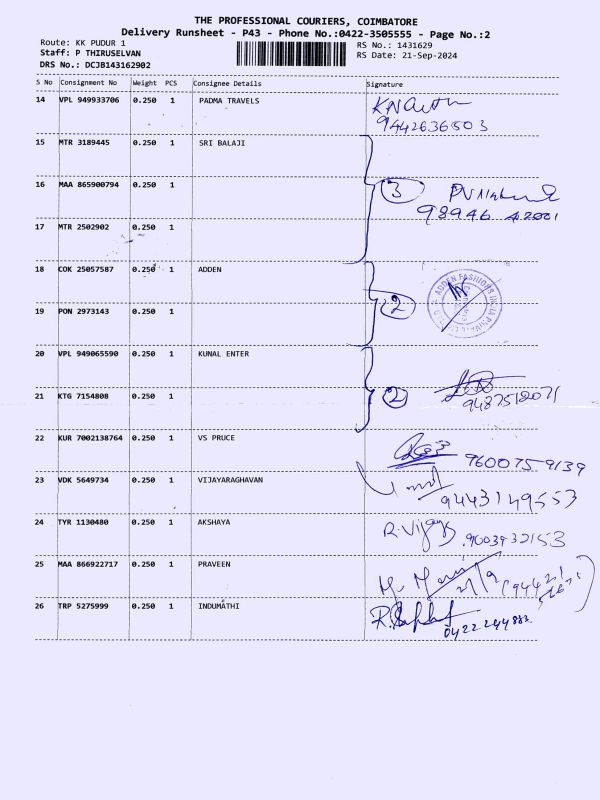 THE PROFESSIONAL COURIERS, COIMBATORE
Delivery Runsheet - P43 - Phone No.:0422-3505555 - Page No.:2
Route: KK PUDUR 1
RS No.: 1431629
Staff: P THIRUSELVAN
RS Date: 21-Sep-2024
DRS No.: DCJB143162902
S No Consignment No Weight PCS Consignee Details Signature
14 VPL 949933706 0.250 1 PADMA TRAVELS
9442636503
15 MTR 3189445 0.250 1 SRI BALAJI
16 MAA 865900794 0.250 1 3
98946 42001
17 MTR 2502902 0.250 1
18 COK 25057587 0.250 1 ADDEN
ADDEN FASHIONS INDIA
19 PON 2973143 0.250 1 2
20 VPL 949065590 0.250 1 KUNAL ENTER
21 KTG 7154808 0.250 1 2
22 KUR 7002138764 0.250 1 VS PRUCE 9600759139
23 VDK 5649734 0.250 1 VIJAYARAGHAVAN
9443149553
24 TYR 1130480 0.250 1 AKSHAYA R. Vijay
25 MAA 866922717 0.250 1 PRAVEEN
26 TRP 5275999 0.250 1 INDUMATHI